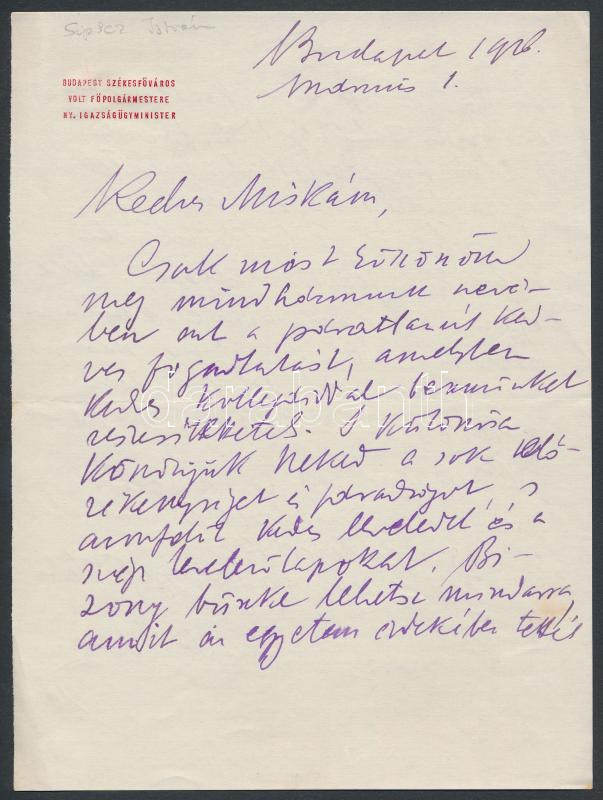 Sipőcz István
Budapest 19
BUDAPEST SZÉKESFŐVÁROS
VOLT FŐPOLGÁRMESTERE
NY. IGAZSÁGÜGYMINISTER
március 1.
Kedves Miskám,
Csak most köszönöm
meg mindhármunk nevé-
ben azt a páratlanúl ked-
ves fogadtatást, amelyben
kedves kollegáiddal bennünket
részesítettetek. S különösen
köszönjük neked a sok
zékenységet és fáradságot, s
kedves leveledet és a
szép levelezőlapokat. Bi-
zony büszke lehetsz mindarra
amit az egyetem érdekében tettél
darabanth